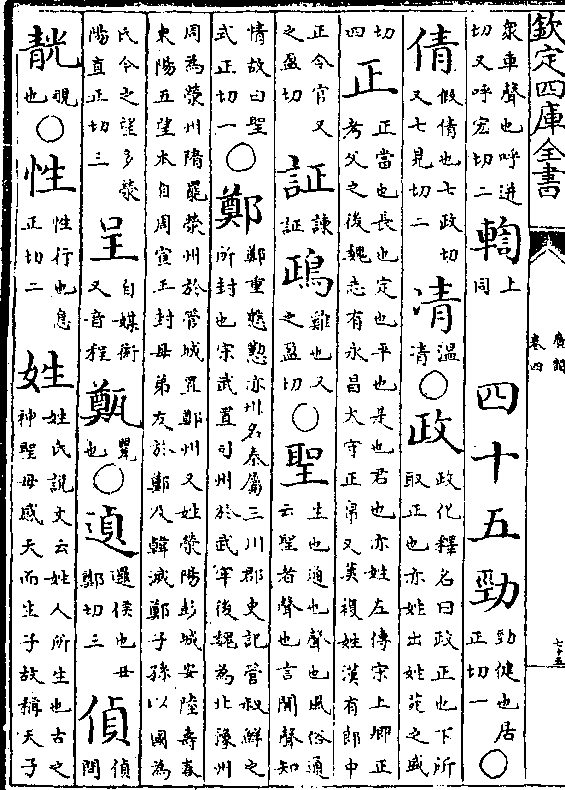 欽定四庫全書
卷四
衆車聲也呼迸切又呼宏切二 輷 上同 四十五勁 勁健也居正切一 ○
倩 假倩也七政切又七見切二 凊 温凊 ○ 政 政化釋名曰政正也下所取正也亦姓出姓苑之盛
切四 正 正當也長也定也平也是也君也亦姓左傳宋上卿正考父之後魏志有永昌太守正帛又漢複姓漢有郎中
正令官又之盈切 証 諫証 鴊 雞也又之盈切 ○ 聖 生也通也聲也風俗通云聖者聲也言聞聲知
情故曰聖武正切一 ○ 鄭 鄭重慇懃亦州名秦屬三川郡史記管叔鮮之所封也宋武置司州於武牢後魏為北豫州
周為滎州隋罷滎州於管城置鄭州又姓滎陽彭城安陸壽春東陽五望本自周宣王封母弟友於鄭及韓滅鄭子孫以國為
氏今之望多滎陽直正切三 呈 自媒衒又音程 甄 甖也 ○ 遉 邏候也丑鄭切三 偵 偵問
靘 覗也 ○ 性 性行也息正切二 姓 姓氏說文云姓人所生也古之神聖母感天而生子故稱天子